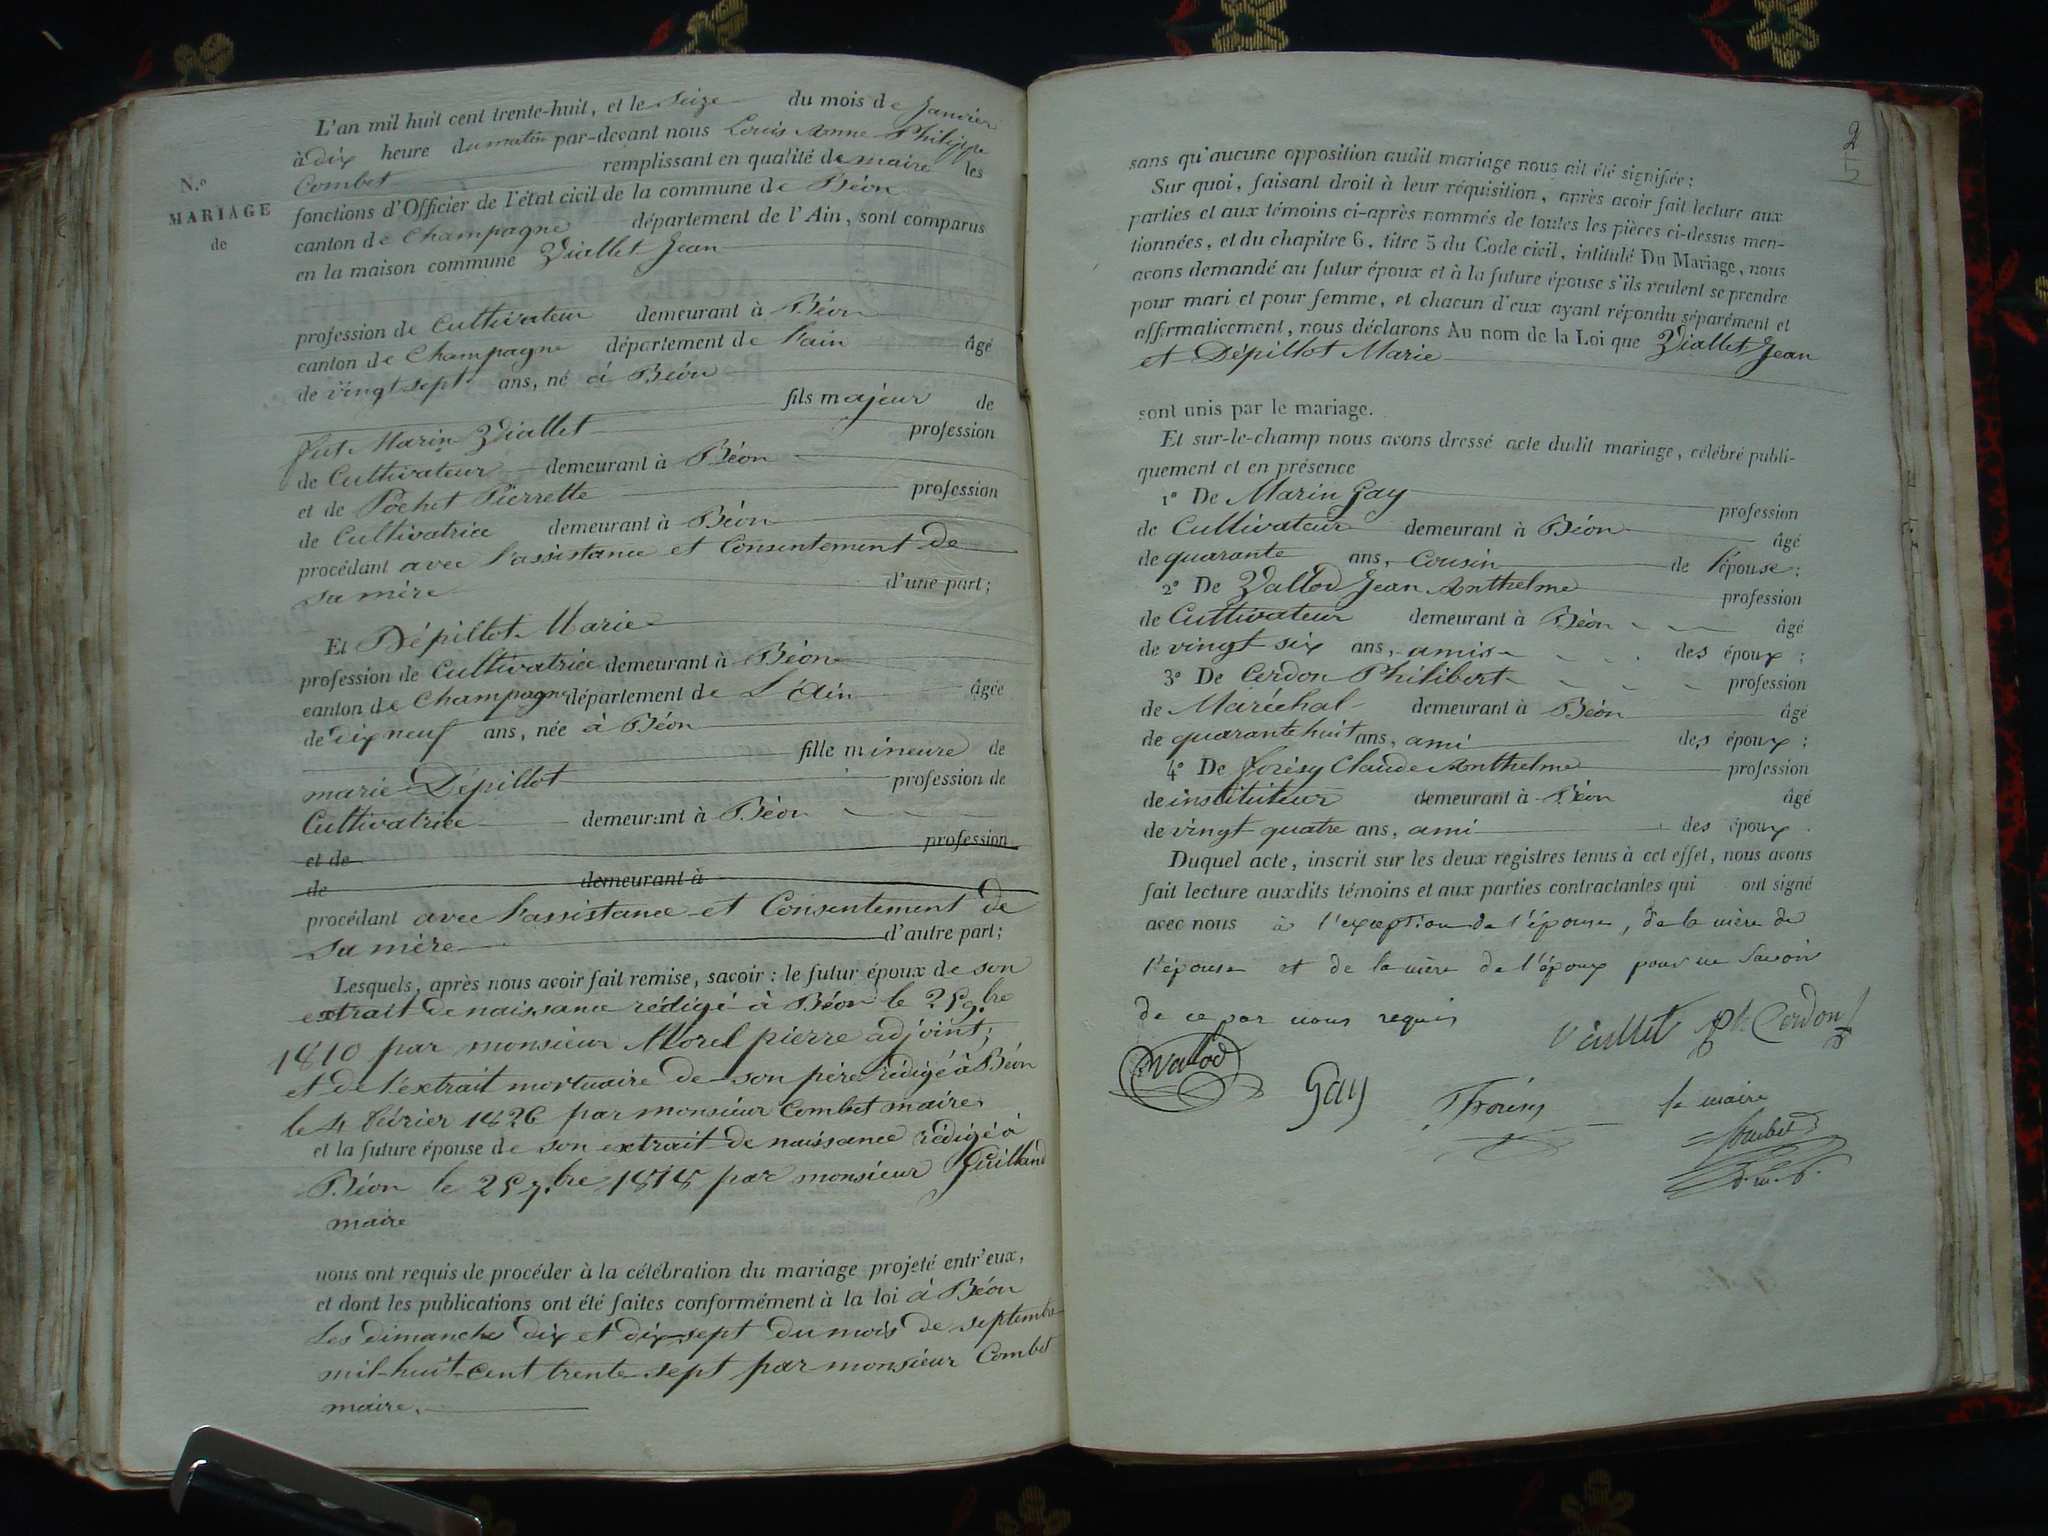 L'an mil huit cent trente-huit, et le seize du mois de Janvier
à dix heure du matin par-devant nous Louis Anne Philippe
Combet remplissant en qualité de maire les
fonctions d'Officier de l'état civil de la commune de Béon
canton de Champagne département de l'Ain, sont comparus
en la maison commune Viallet Jean
N.o
MARIAGE
de
profession de Cultivateur demeurant à Béon
canton de Champagne département de l'ain âgé
de vingt sept ans, né à Béon
fils majeur de
fut Marin Viallet profession
de Cultivateur demeurant à Béon
et de Pochet Pierrette profession
de Cultivatrice demeurant à Béon
procédant avec l'assistance et Consentement de
sa mère d'une part;
Et Dépillot Marie
profession de Cultivatrice demeurant à Béon
canton de Champagne département de L'Ain âgée
de dix neuf ans, née à Béon
fille mineure de
marie Dépillot profession de
Cultivatrice demeurant à Béon
et de profession
de demeurant à
procédant avec l'assistance et Consentement de
sa mère d'autre part;
Lesquels, après nous avoir fait remise, savoir: le futur époux de son
extrait de naissance rédigé à Béon le 25 9.bre
1810 par monsieur Morel pierre adjoint;
et de l'extrait mortuaire de son père rédigé à Béon
le 4 février 1826 par monsieur Combet maire
et la future épouse de son extrait de naissance rédigé à
Béon le 25 7.bre 1818 par monsieur Guilland
maire
nous ont requis de procéder à la célébration du mariage projeté entr'eux,
et dont les publications ont été faites conformément à la loi à Béon
Les dimanches dix et dix sept du mois de septembre
mil-huit-cent trente sept par monsieur Combet
maire.
2
5
sans qu'aucune opposition audit mariage nous ait été signifiée;
Sur quoi, faisant droit à leur réquisition, après avoir fait lecture aux
parties et aux témoins ci-après nommés de toutes les pièces ci-dessus men-
tionnées, et du chapitre 6, titre 5 du Code civil, intitulé Du Mariage, nous
avons demandé au futur époux et à la future épouse s'ils veulent se prendre
pour mari et pour femme, et chacun d'eux ayant répondu séparément et
affirmativement, nous déclarons Au nom de la Loi que Viallet Jean
et Dépillot Marie
sont unis par le mariage.
Et sur-le-champ nous avons dressé acte dudit mariage, célébré publi-
quement et en présence
1° De Marin Gay profession
de Cultivateur demeurant à Béon âgé
de quarante ans, Cousin de l'épouse;
2° De Vallod Jean Anthelme profession
de Cultivateur demeurant à Béon âgé
de vingt six ans, amis des époux;
3° De Cerdon Philibert profession
de Maréchal demeurant à Béon âgé
de quarante huit ans, ami des époux;
4° De Forisy Claude Anthelme profession
de instituteur demeurant à Béon âgé
de vingt quatre ans, ami des époux.
Duquel acte, inscrit sur les deux registres tenus à cet effet, nous avons
fait lecture auxdits témoins et aux parties contractantes qui ont signé
avec nous à l'exception de l'épouse, de la mère de
l'épouse et de la mère de l'époux pour ne savoir
de ce par nous requis
Viallet Ph Cerdon
Vallod Gay le maire
Combet